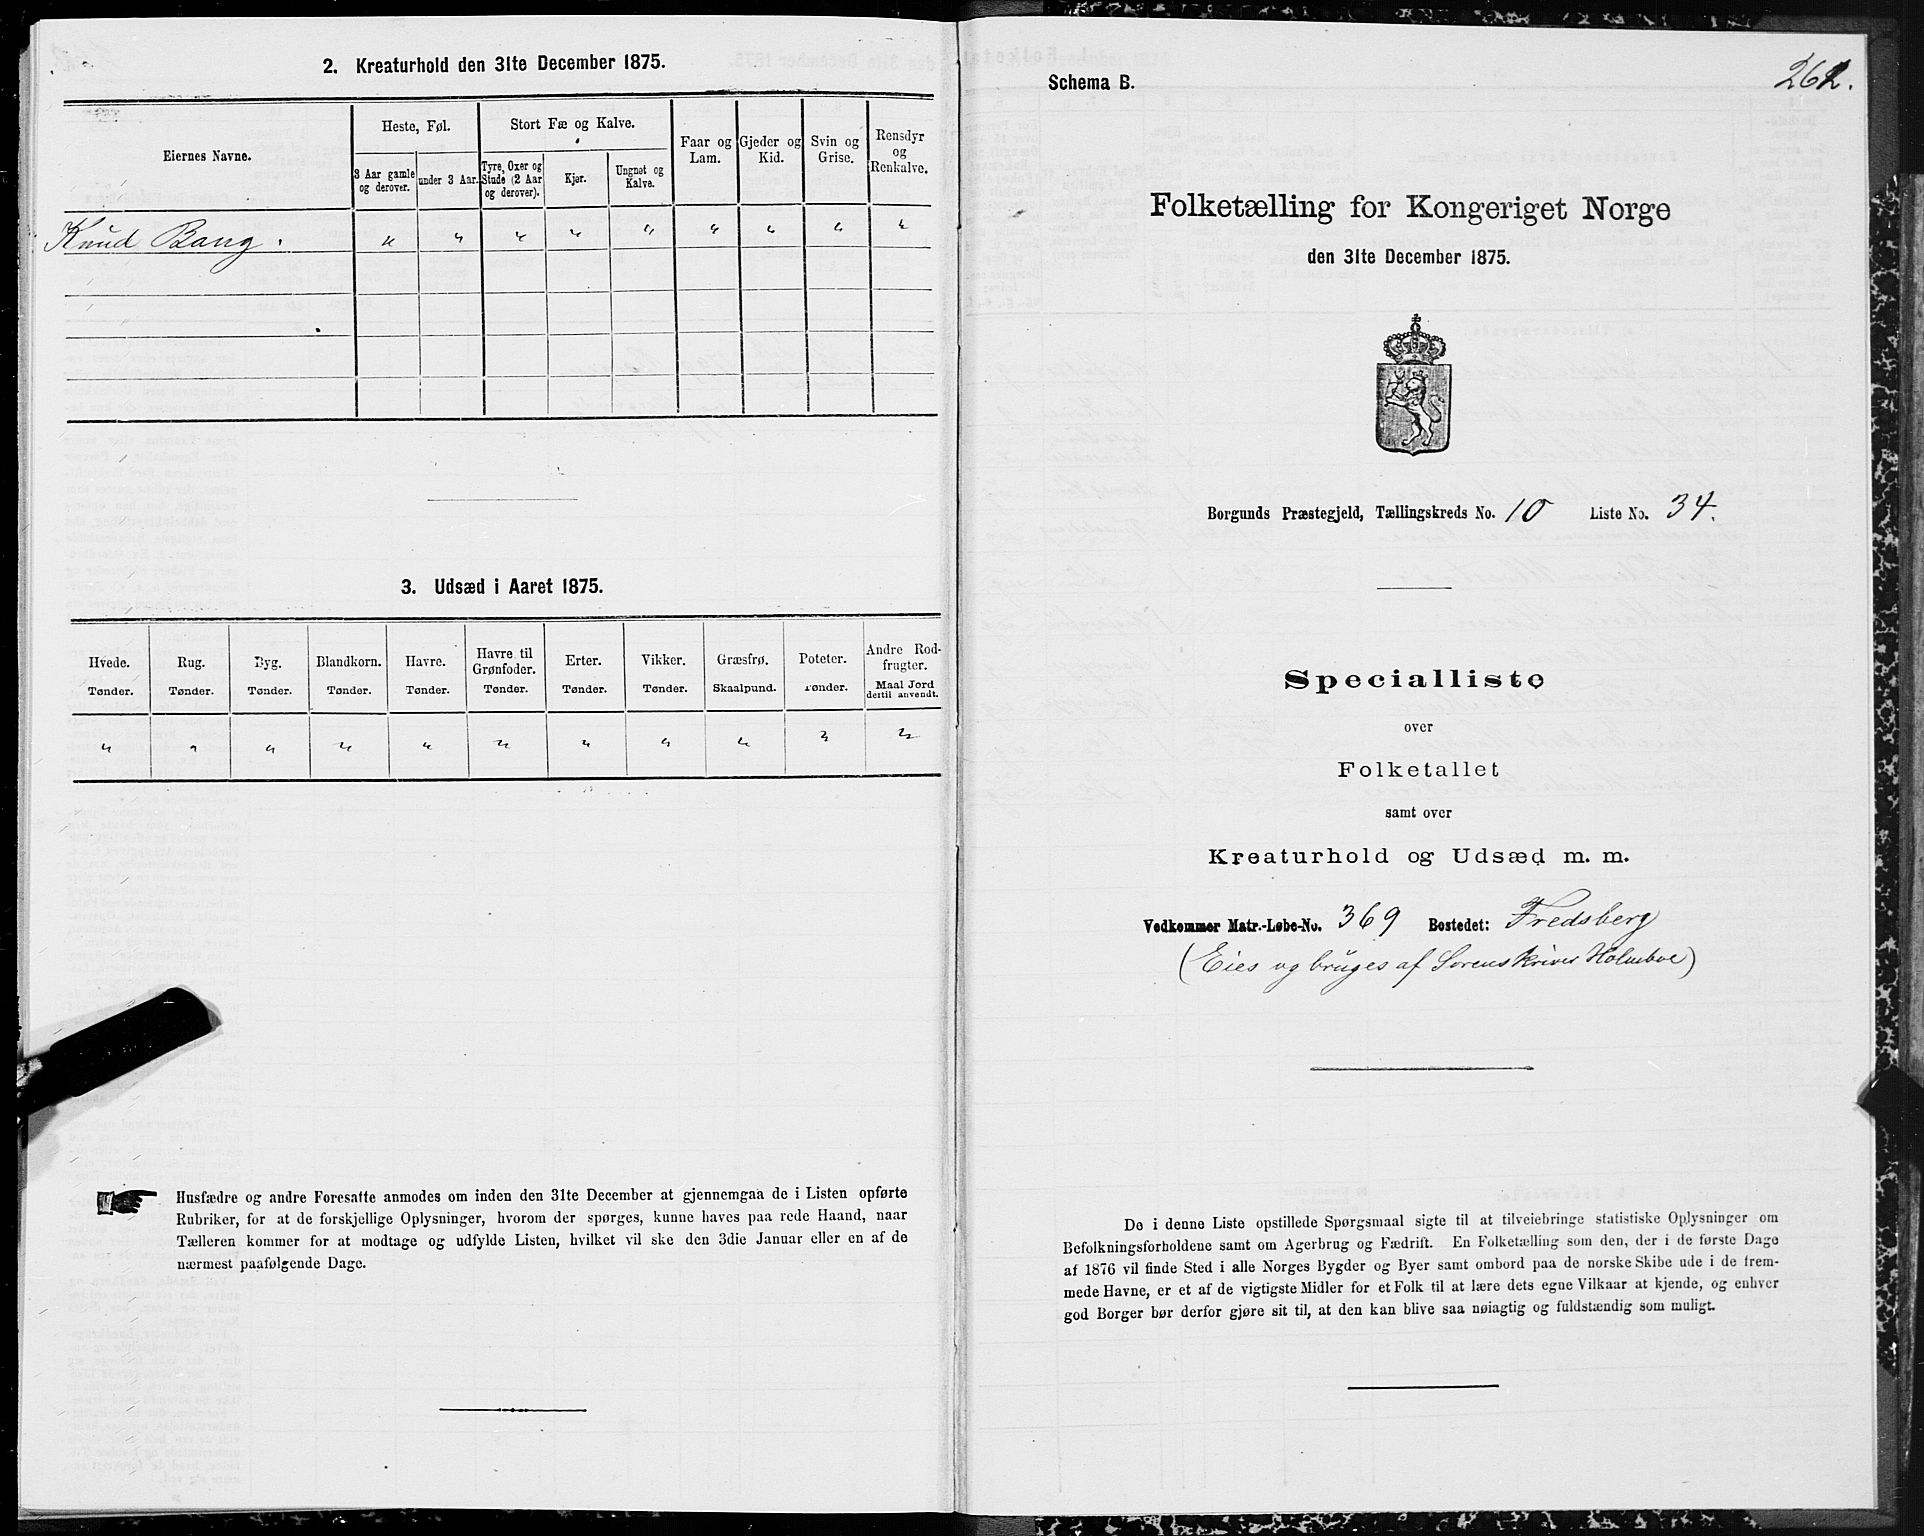 2. Kreaturhold den 31te December 1875.
Eiernes Navne.
Heste, Føl.
Stort Fæ og Kalve.
Faar og Lam.
Gjeder og Kid.
Svin og Grise.
Rensdyr og Renkalve.
3 Aar gamle og derover.
under 3 Aar.
Tyre, Oxer og Stude (2 Aar og derover).
Kjør.
Ungnøt og Kalve.
Knud Bang. " " " " " " " " "
3. Udsæd i Aaret 1875.
Hvede. Tønder.
Rug. Tønder.
Byg. Tønder.
Blandkorn. Tønder.
Havre. Tønder.
Havre til Grønfoder. Tønder.
Erter. Tønder.
Vikker. Tønder.
Græsfrø. Skaalpund.
Poteter. Tønder.
Andre Rodfrugter. Maal Jord dertil anvendt.
" " " " " " " " " " "
Husfædre og andre Foresatte anmodes om inden den 31te December at gjennemgaa de i Listen opførte
Rubriker, for at de forskjellige Oplysninger, hvorom der spørges, kunne haves paa rede Haand, naar
Tælleren kommer for at modtage og udfylde Listen, hvilket vil ske den 3die Januar eller en af de
nærmest paafølgende Dage.
Schema B.
262.
Folketælling for Kongeriget Norge
den 31te December 1875.
Borgunds Præstegjeld, Tællingskreds No. 10 Liste No. 34.
Specialliste
over
Folketallet
samt over
Kreaturhold og Udsæd m. m.
Vedkommer Matr.-Løbe-No. 369 Bostedet: Fredsberg
(Eies og bruges af Sorenskriver Holmboe)
De i denne Liste opstillede Spørgsmaal sigte til at tilveiebringe statistiske Oplysninger om
Befolkningsforholdene samt om Agerbrug og Fædrift. En Folketælling som den, der i de første Dage
af 1876 vil finde Sted i alle Norges Bygder og Byer samt ombord paa de norske Skibe ude i de frem-
mede Havne, er et af de vigtigste Midler for et Folk til at lære dets egne Vilkaar at kjende, og enhver
god Borger bør derfor gjøre sit til, at den kan blive saa nøiagtig og fuldstændig som muligt.